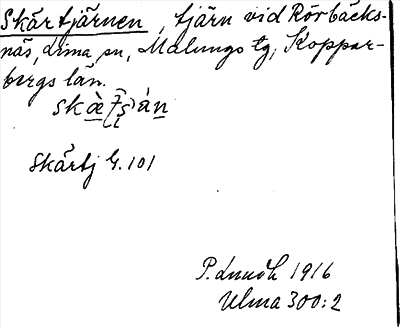 Skärtjärnen, tjärn vid Rörbäcks-
näs, Lima sn, Malungs tg, Koppar-
bergs län.
Skärtj G. 101
P. 1916
Ulma 300:2